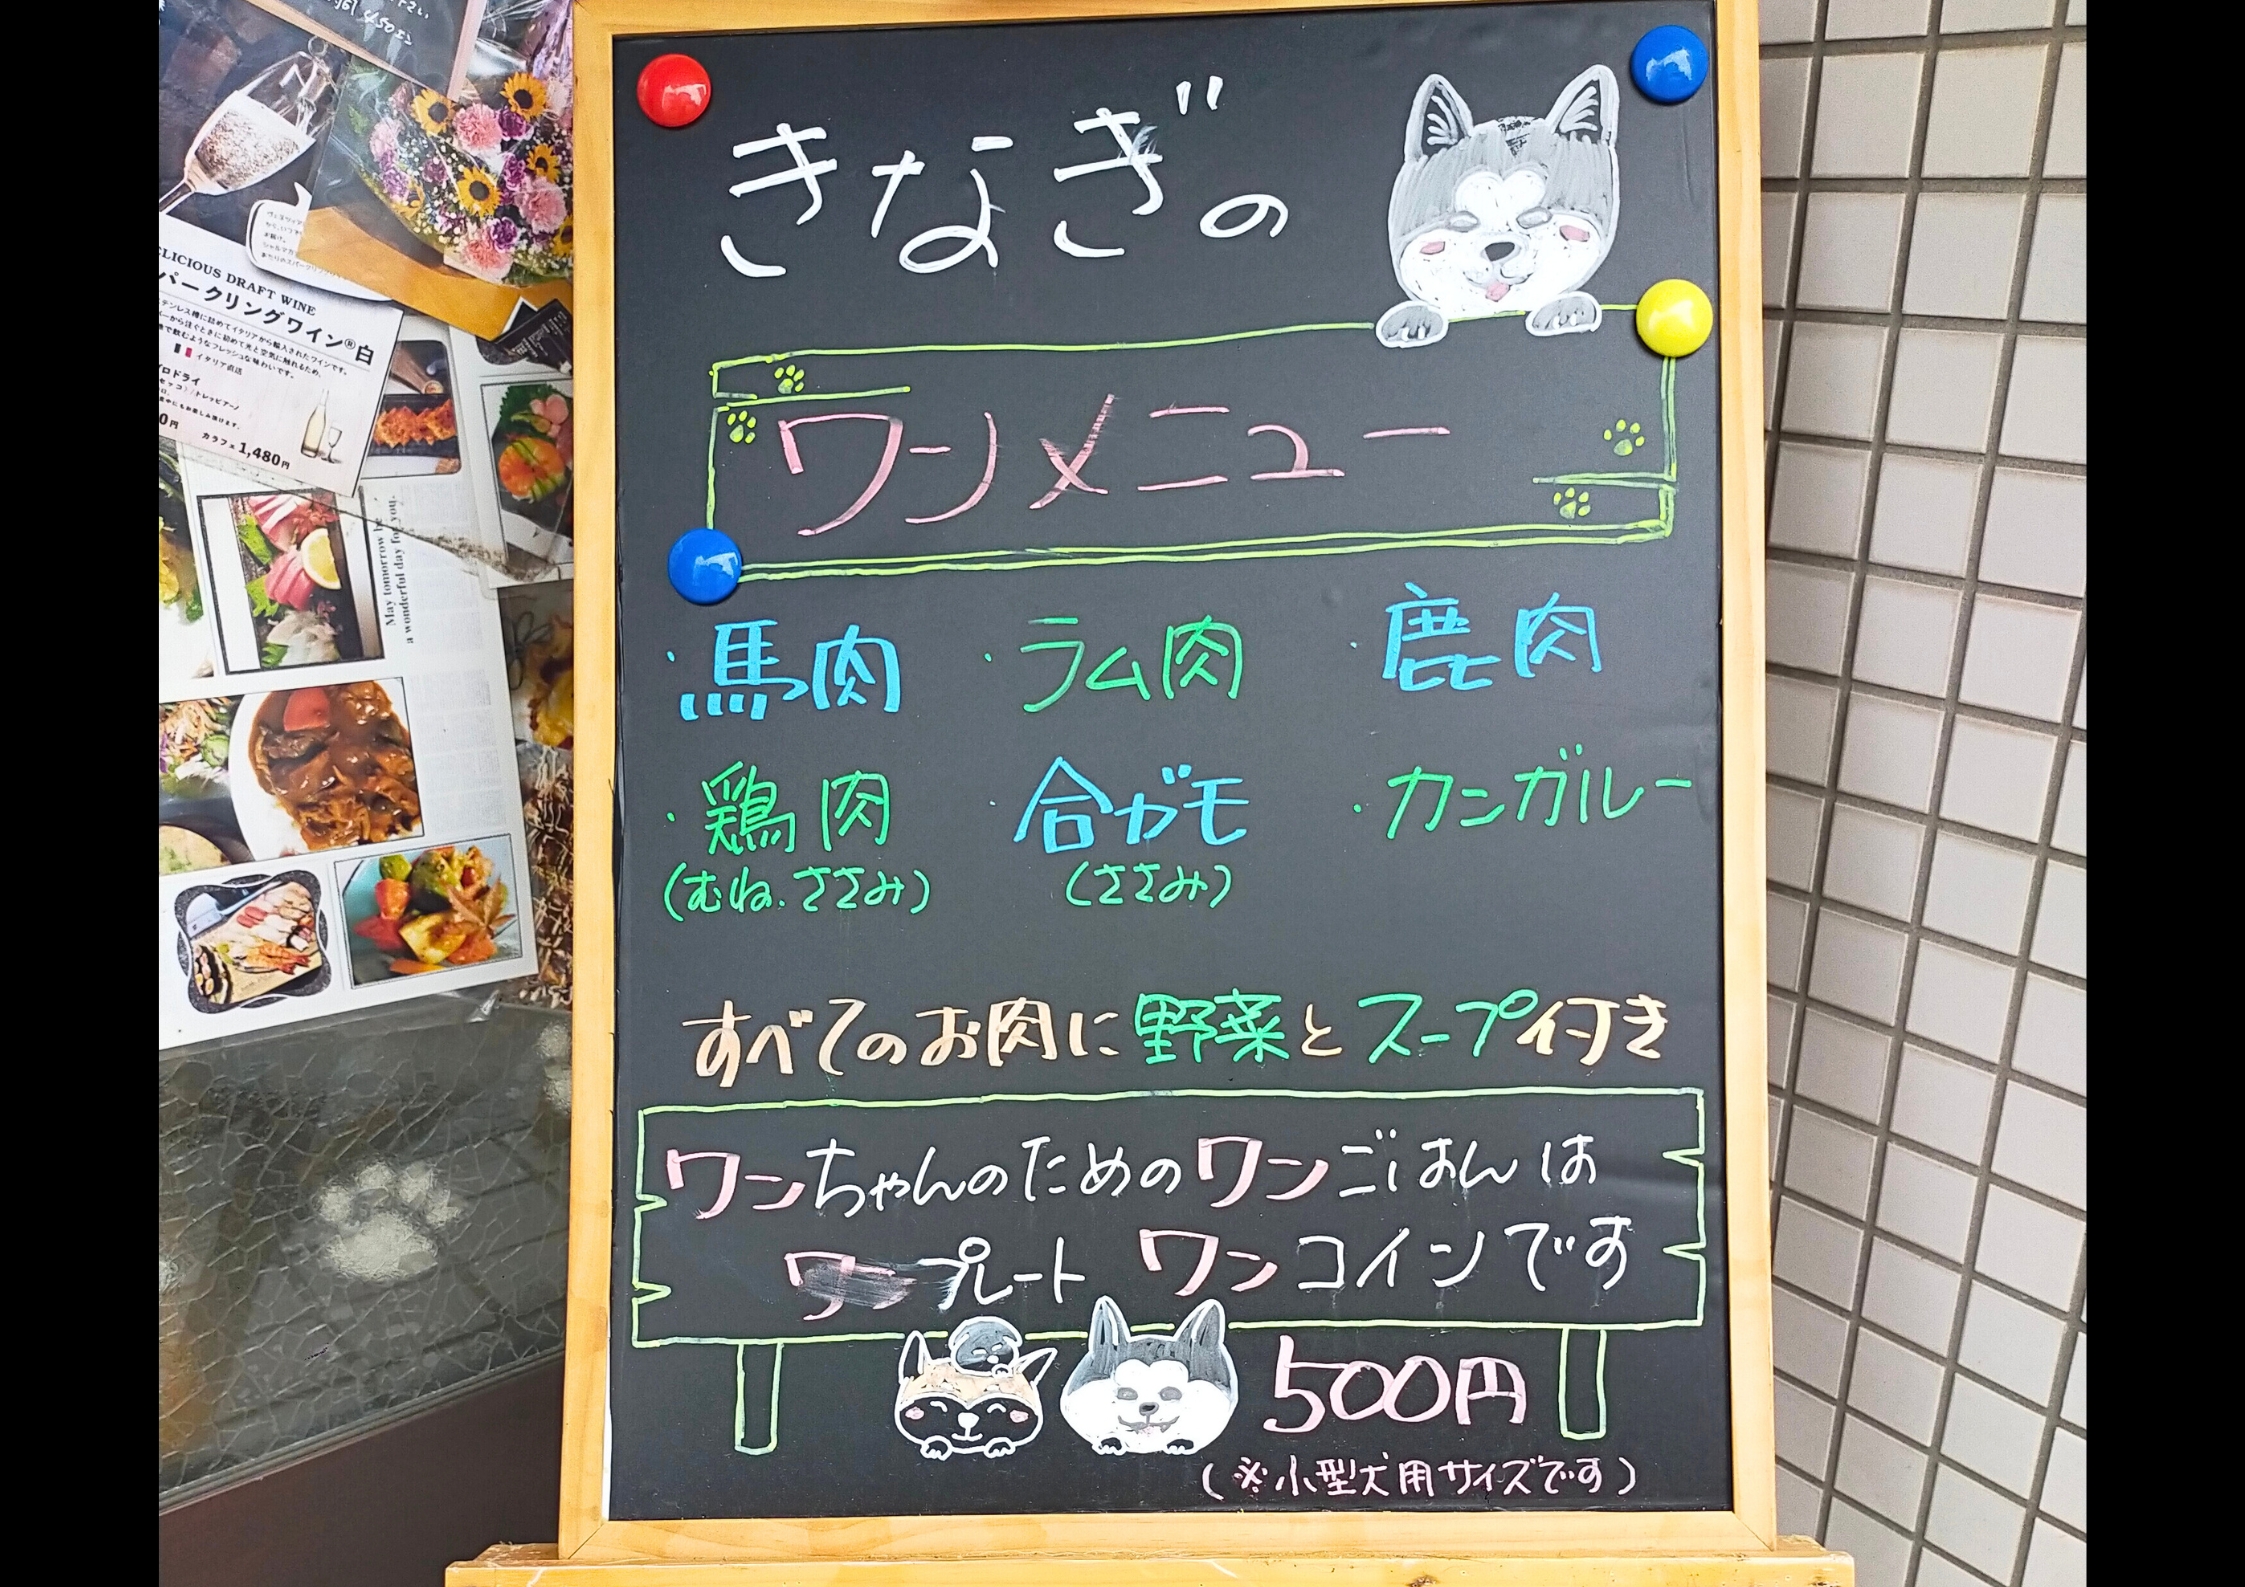 きなぎの
ワンメニュー
・馬肉 ・ラム肉 ・鹿肉
・鶏肉 ・合ガモ ・カンガルー
(むね、ささみ) (ささみ)
すべてのお肉に野菜とスープ付き
ワンちゃんのためのワンごはんは
ワンプレート ワンコインです
500円
(※小型犬用サイズです)
450エン
ELICIOUS DRAFT WINE
パークリングワイン®白
イタリア直送
カラフェ 1,480円
May tomorrow be
a wonderful day for you.